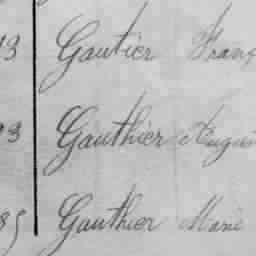 Gautier Franç
Gauthier Augus
Gauthier Marie